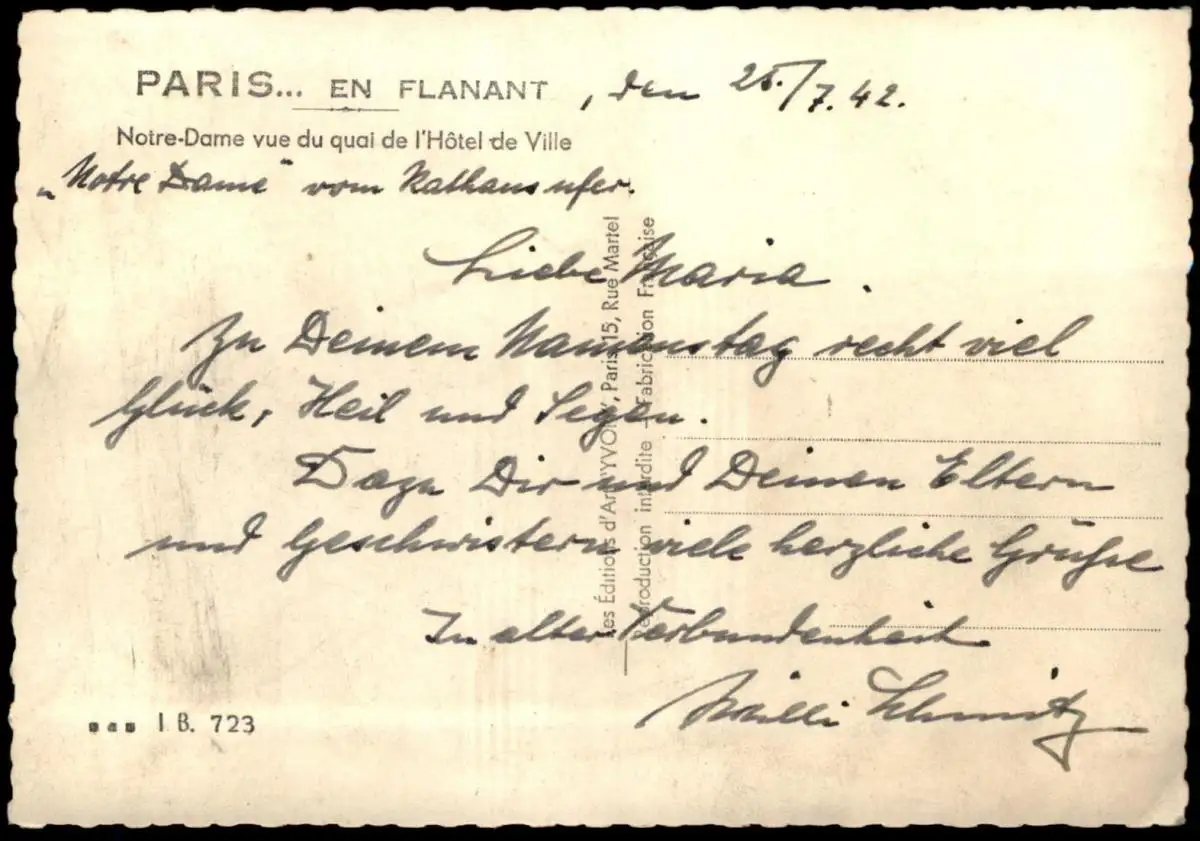 PARIS... EN FLANANT , den 25./7.42.
Notre-Dame vue du quai de l'Hôtel de Ville
„Notre Dame“ vom Rathausufer.
Liebe Maria.
Zu Deinem Namenstag recht viel
Glück, Heil und Segen.
Dazu Dir und Deinen Eltern
und Geschwistern viele herzliche Grüße
In alter Verbundenheit
Willi Schmitz
Les Éditions d'Art "YVON", Paris, 15, Rue Martel
Reproduction interdite - Fabrication Française
I.B. 723